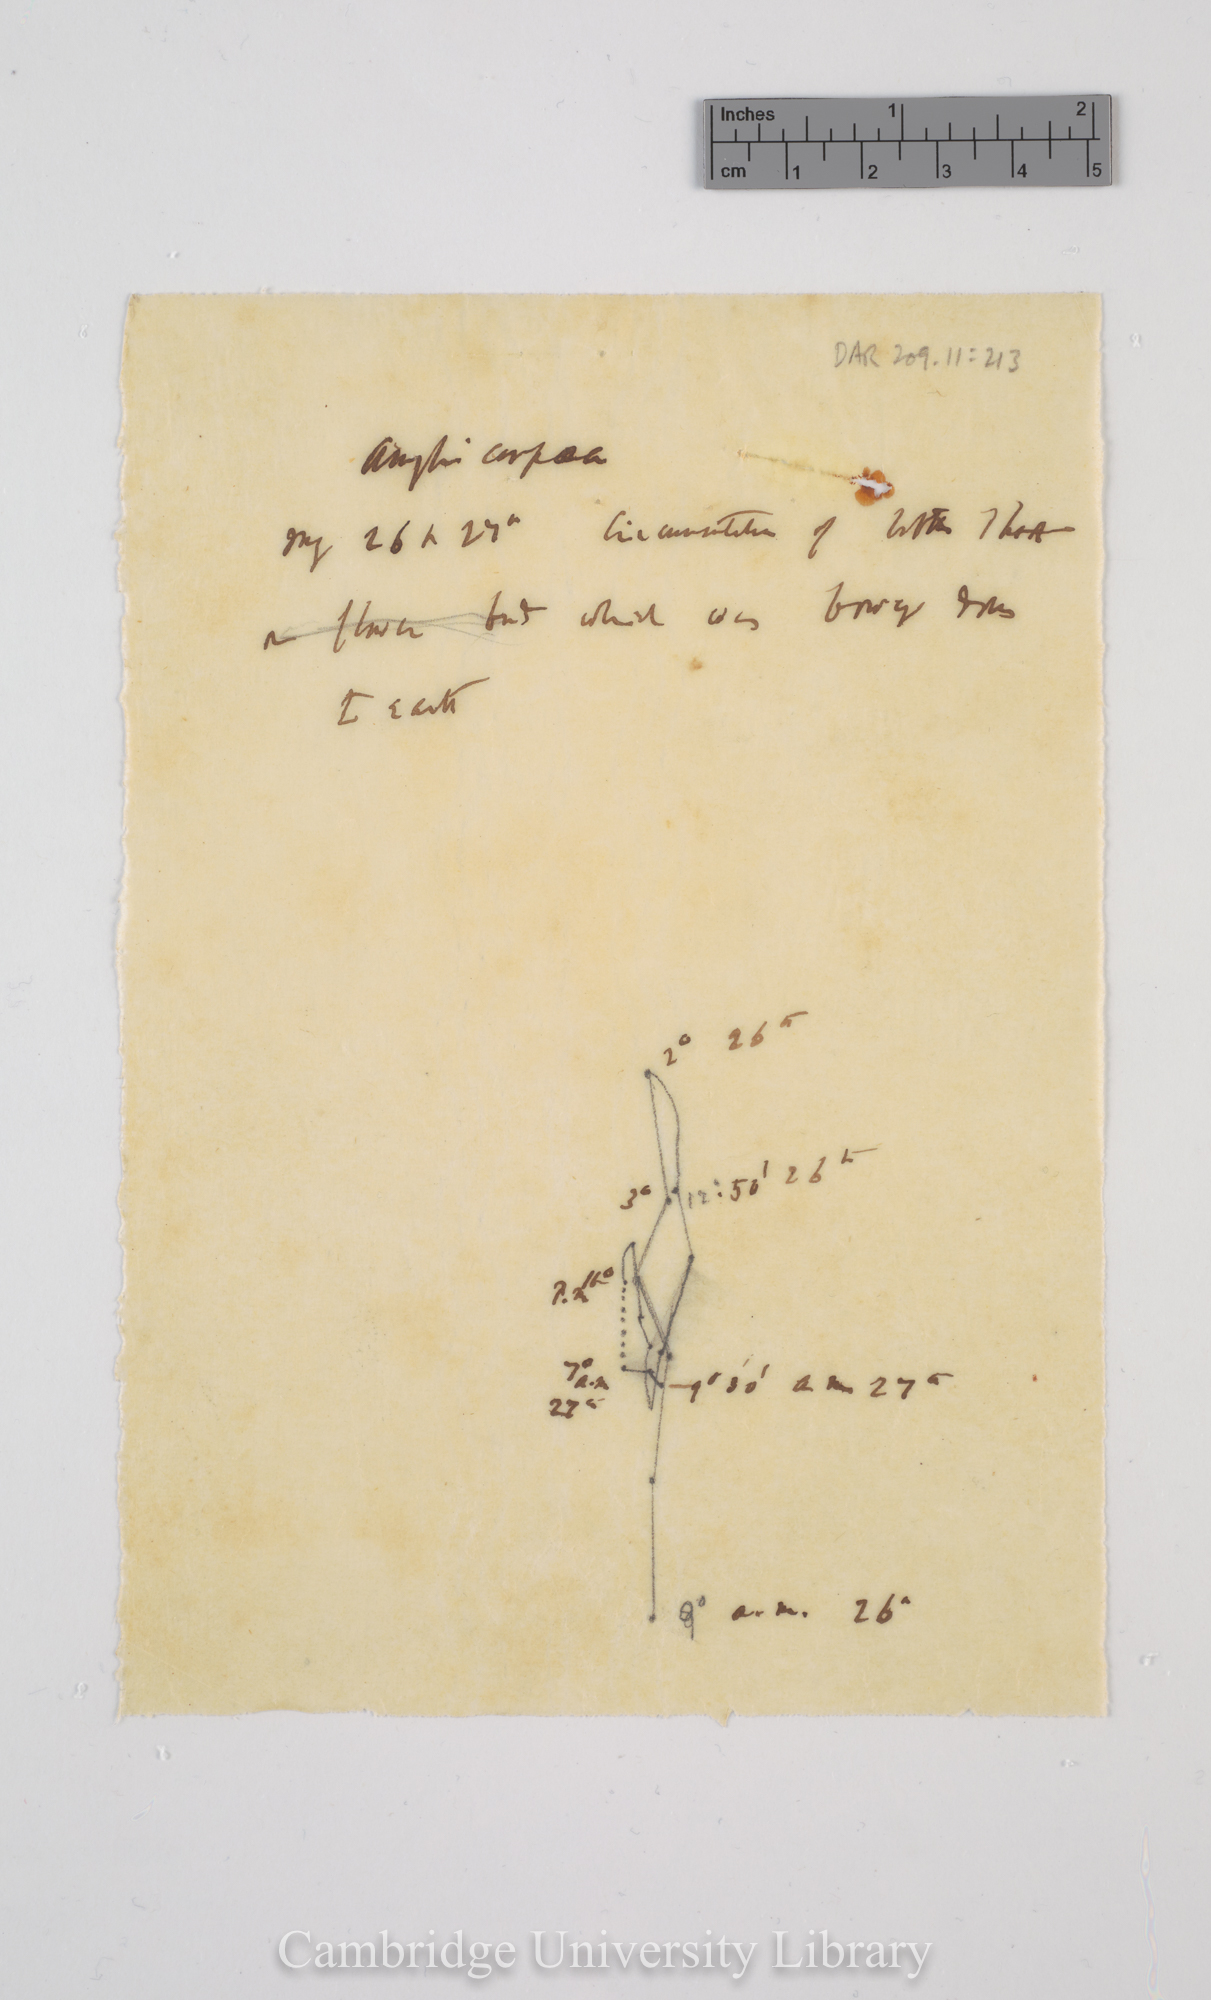 Inches 1 2
cm 1 2 3 4 5
DAR 209.11:213
Amphicarpaea
Aug 26 & 27th Circumnutation of little Shoot
or flower bud which was bowing down
to earth
2° 26th
3° 12°:50' 26th
7°
a.m
27th
9° 30' a.m 27th
8° a.m. 26th
Cambridge University Library